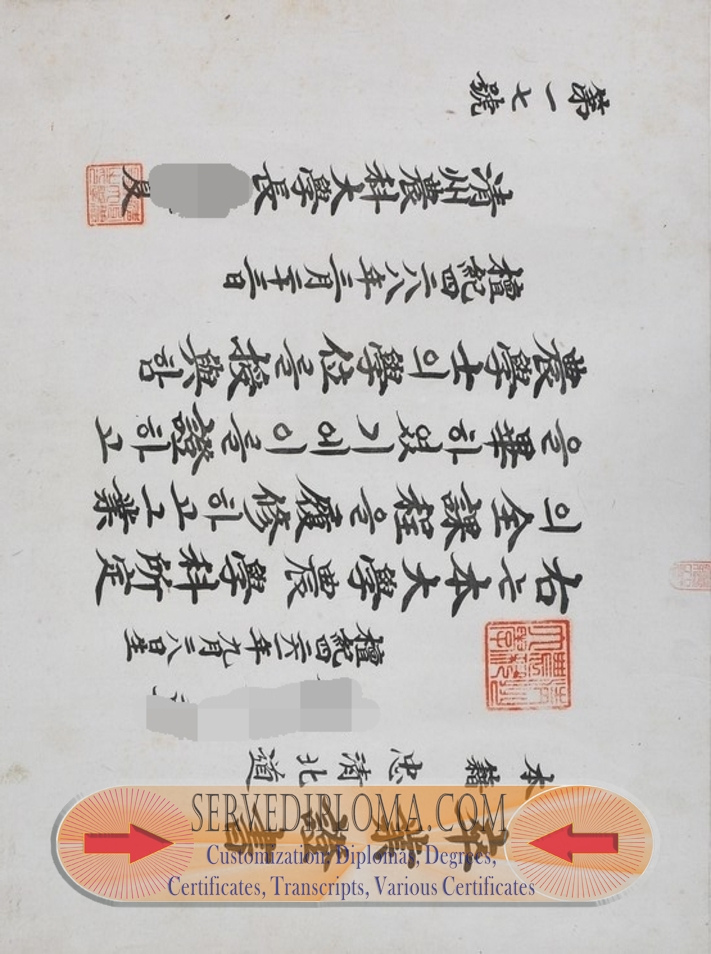 卒業證書
本籍 忠清北道
檀紀四二六一年九月二八日生
右는本大學農學科所定
의全課程을履修하고그業
을畢하였기에이를證하고
農學士의學位를授與함
檀紀四二八八年三月二十三日
清州農科大學長
第一七號
SERVEDIPLOMA.COM
Customization: Diplomas, Degrees,
Certificates, Transcripts, Various Certificates